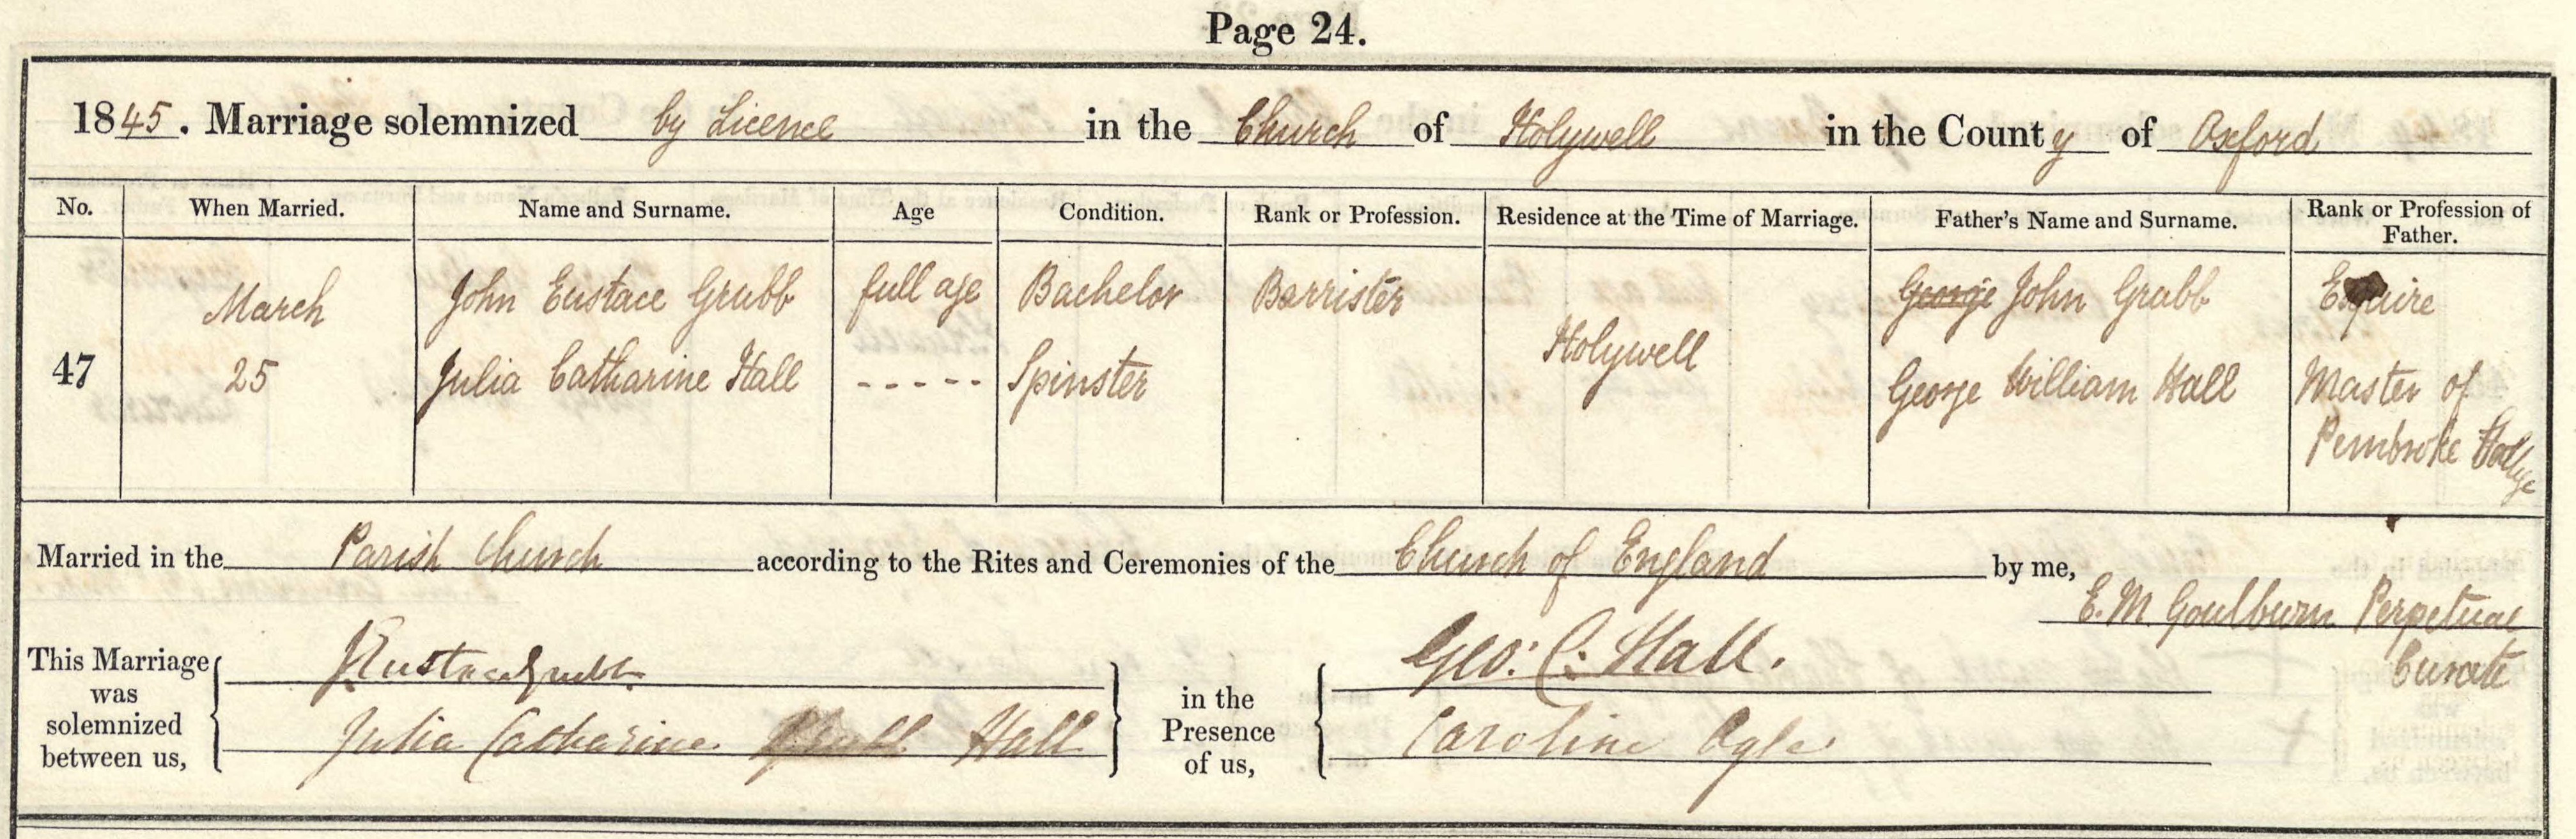 Page 24.
1845. Marriage solemnized by Licence in the Church of Holywell in the County of Oxford
No. When Married. Name and Surname. Age Condition. Rank or Profession. Residence at the Time of Marriage. Father's Name and Surname. Rank or Profession of Father.
March John Eustace Grubb full age Bachelor Barrister George John Grubb Esquire
47 25 Julia Catharine Hall ----- Spinster Holywell George William Hall Master of
Pembroke
Married in the Parish Church according to the Rites and Ceremonies of the Church of England by me,
E. M. Goulburn Perpetual
Curate
This Marriage was solemnized between us, J Eustace Grubb in the Presence of us, Geo: C: Hall.
Julia Catharine Hall Caroline Ogle